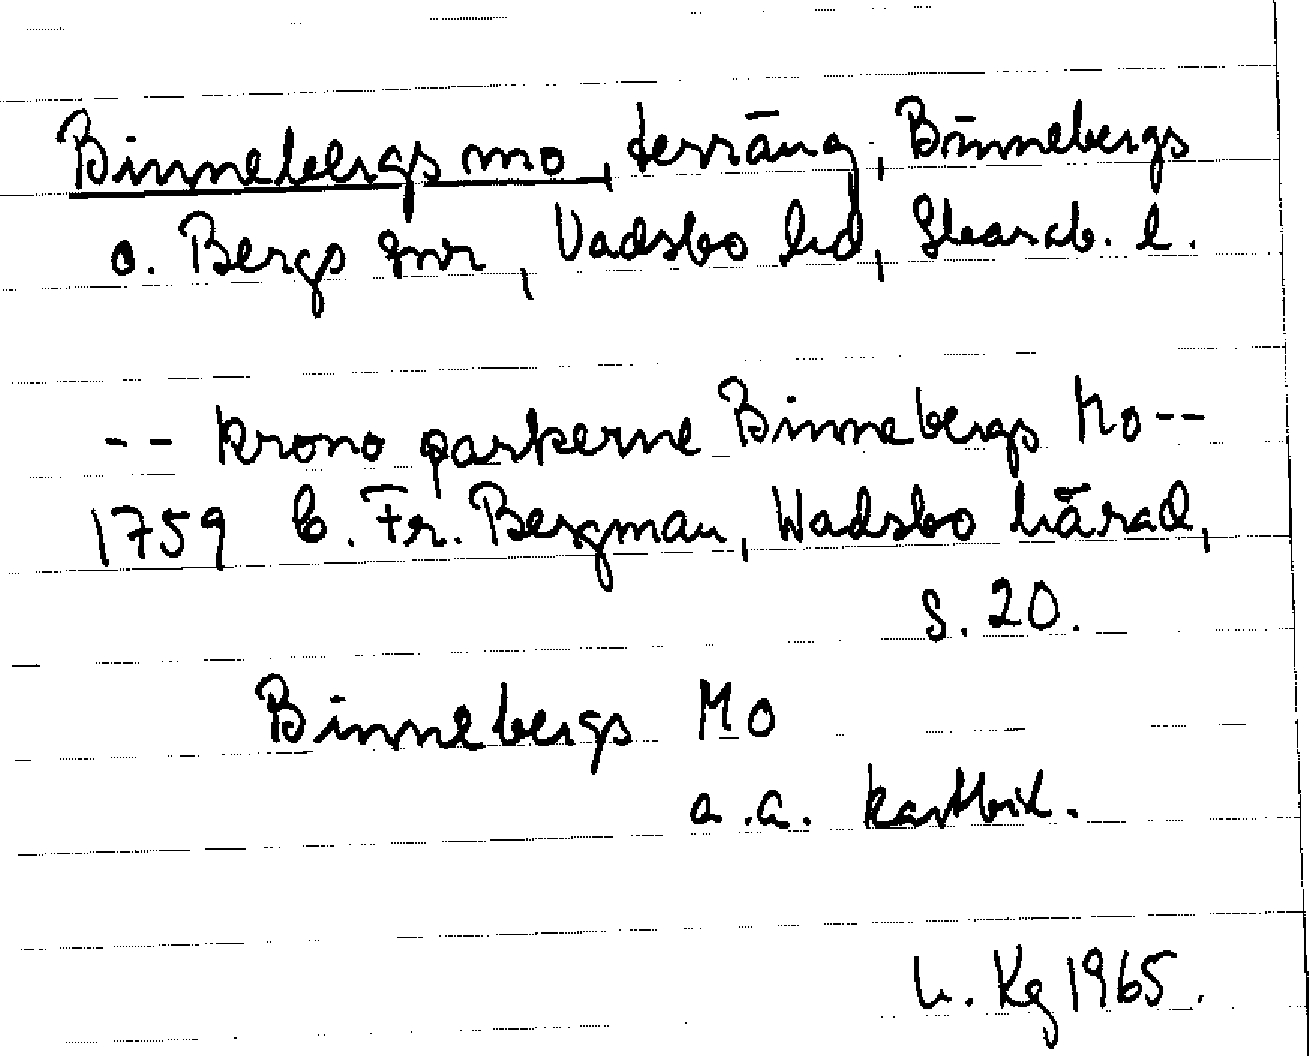 Binnebergs mo, terräng, Binnebergs
o. Bergs snr, Vadsbo hd, Skarab. l.
-- krono parkerne Binnebergs Mo--
1759 C. Fr. Bergman, Wadsbo härad,
s. 20.
Binnebergs Mo
a.a. kartbil.
L. Kg 1965.